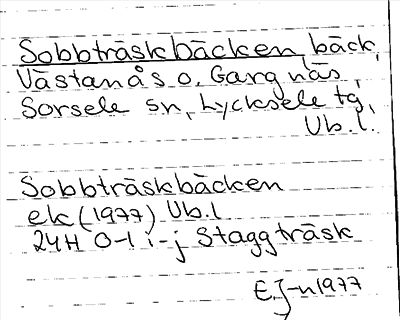 Sobbträskbäcken, bäck,
Västanås o. Gargnäs,
Sorsele sn, Lycksele tg,
Vb.l.
Sobbträskbäcken
ek (1977) Vb.l
24H 0-1 i-j Staggträsk
E.J-n 1977